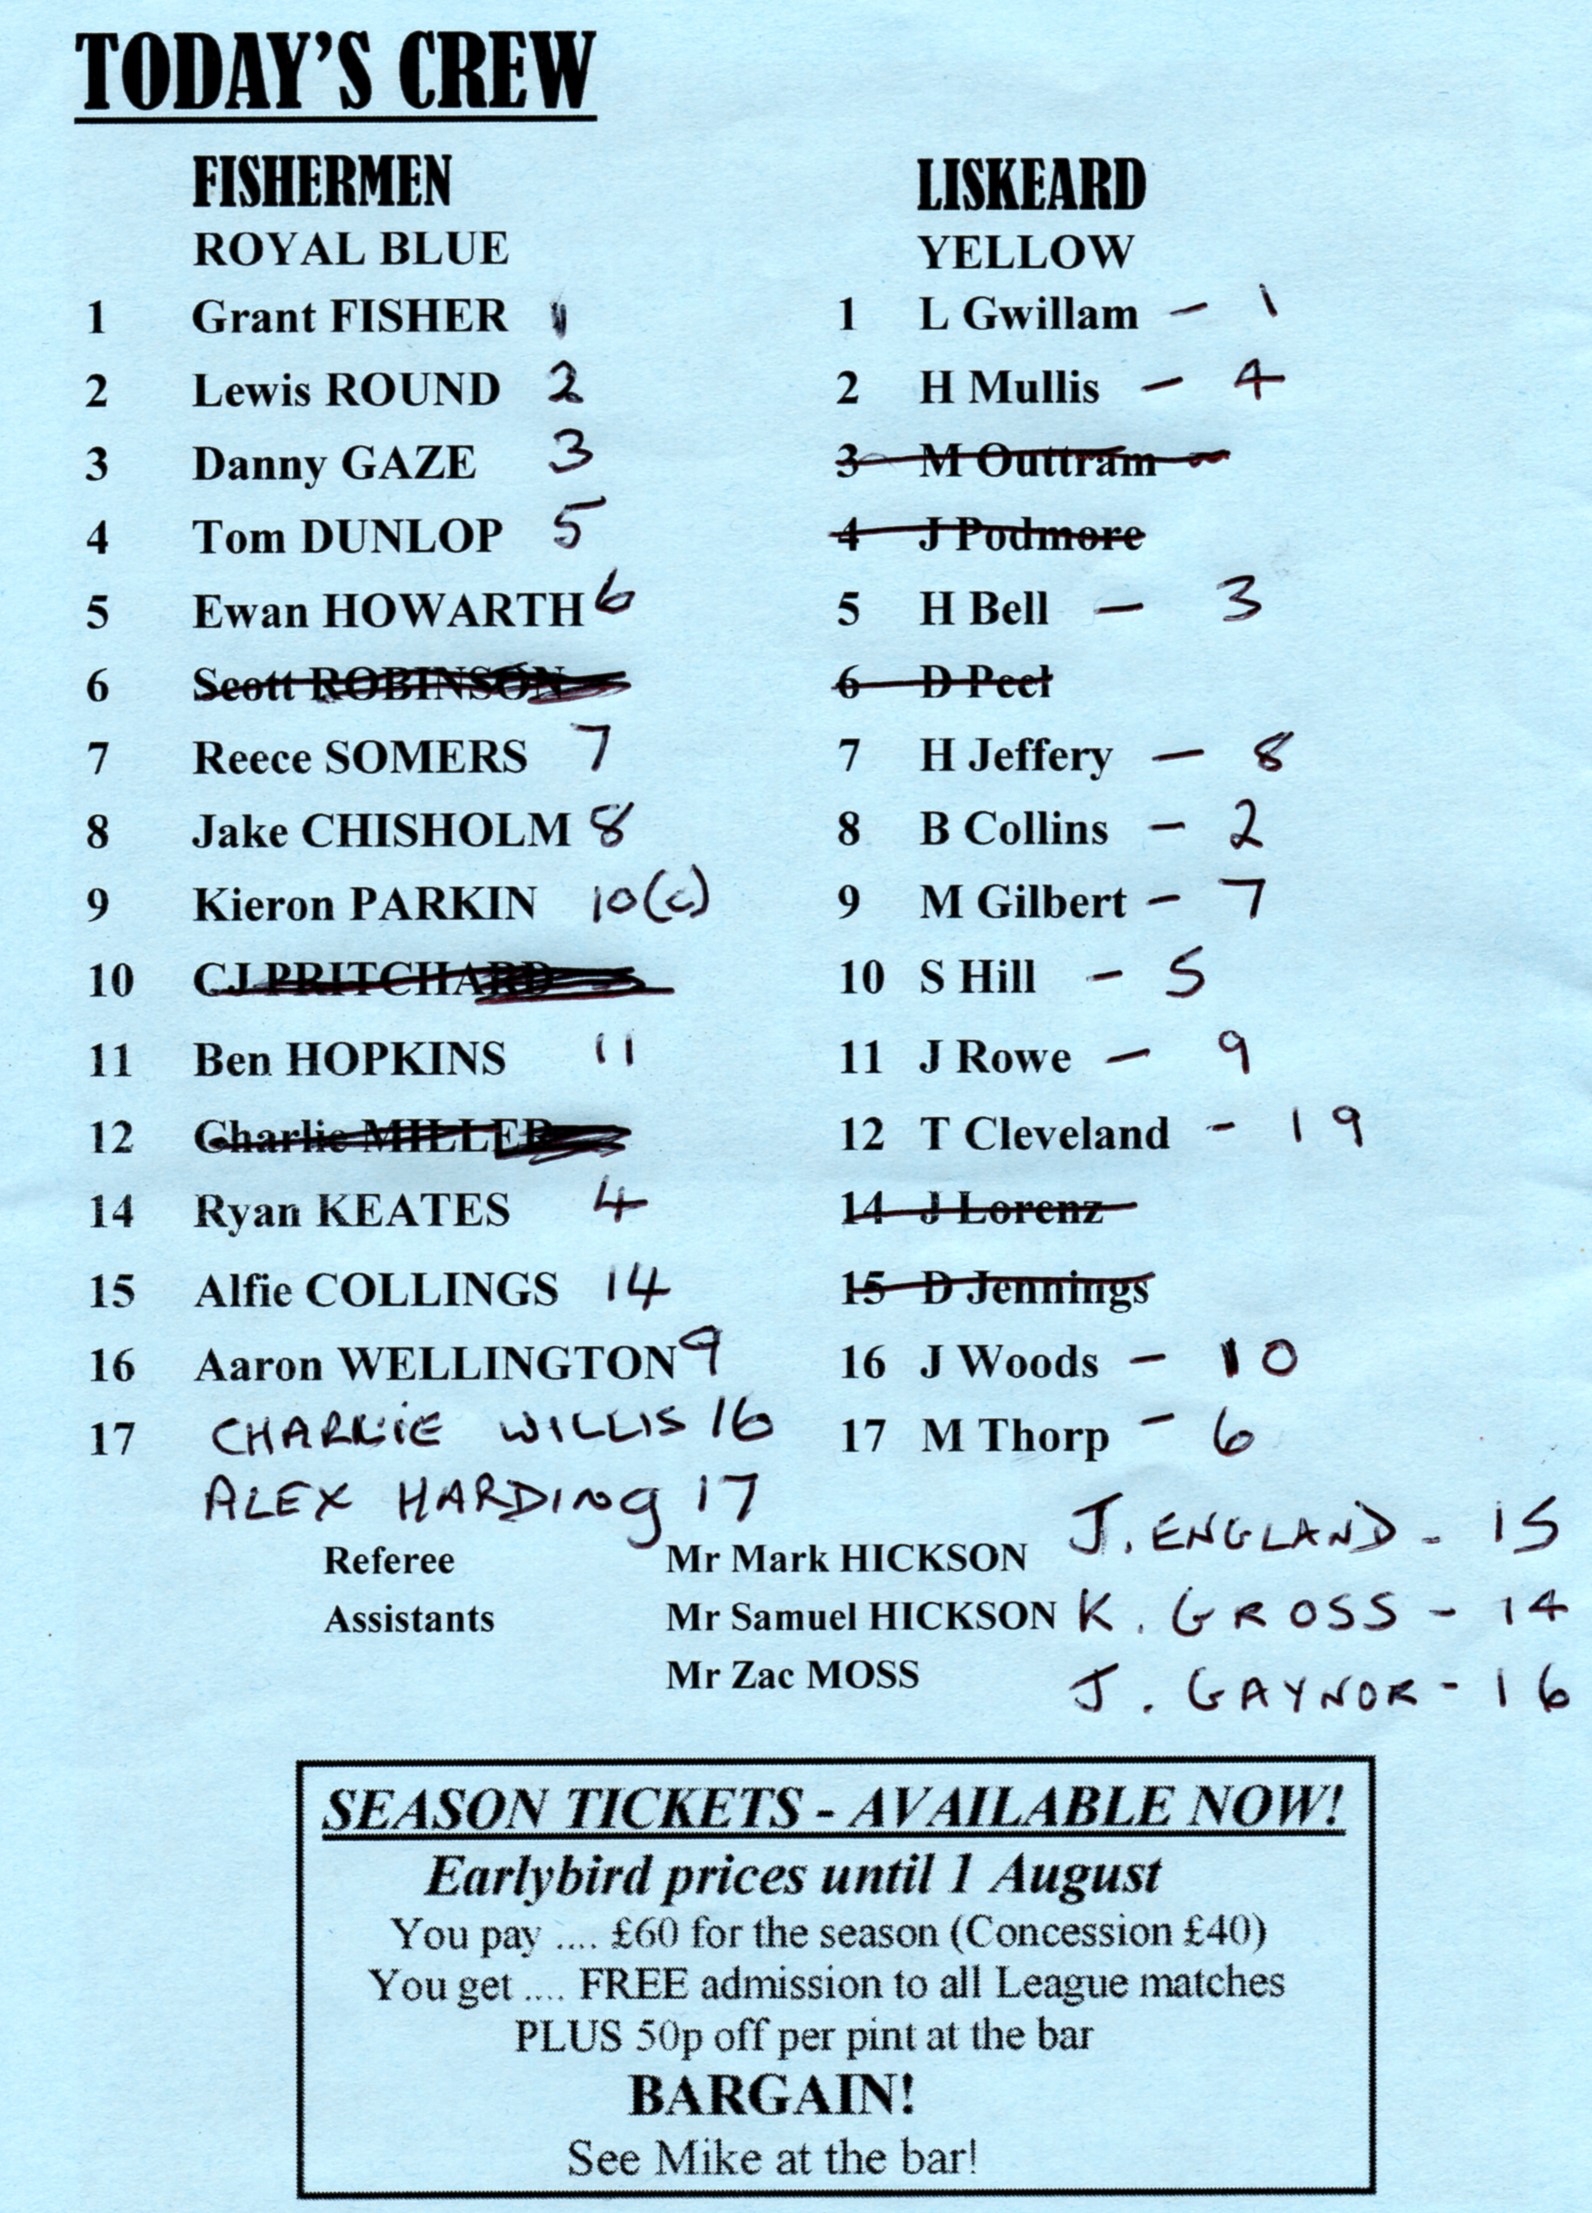 TODAY'S CREW
FISHERMEN
ROYAL BLUE
1 Grant FISHER 1
2 Lewis ROUND 2
3 Danny GAZE 3
4 Tom DUNLOP 5
5 Ewan HOWARTH 6
6 Scott ROBINSON
7 Reece SOMERS 7
8 Jake CHISHOLM 8
9 Kieron PARKIN 10(c)
10 CJ PRITCHARD
11 Ben HOPKINS 11
12 Charlie MILLER
14 Ryan KEATES 4
15 Alfie COLLINGS 14
16 Aaron WELLINGTON 9
17 CHARLIE WILLIS 16
ALEX HARDING 17
LISKEARD
YELLOW
1 L Gwillam - 1
2 H Mullis - 4
3 M Outtram -
4 J Podmore
5 H Bell - 3
6 D Peel
7 H Jeffery - 8
8 B Collins - 2
9 M Gilbert - 7
10 S Hill - 5
11 J Rowe - 9
12 T Cleveland - 19
14 J Lorenz
15 D Jennings
16 J Woods - 10
17 M Thorp - 6
J. ENGLAND - 15
K. GROSS - 14
J. GAYNOR - 16
Referee Mr Mark HICKSON
Assistants Mr Samuel HICKSON
Mr Zac MOSS
SEASON TICKETS - AVAILABLE NOW!
Earlybird prices until 1 August
You pay .... £60 for the season (Concession £40)
You get .... FREE admission to all League matches
PLUS 50p off per pint at the bar
BARGAIN!
See Mike at the bar!